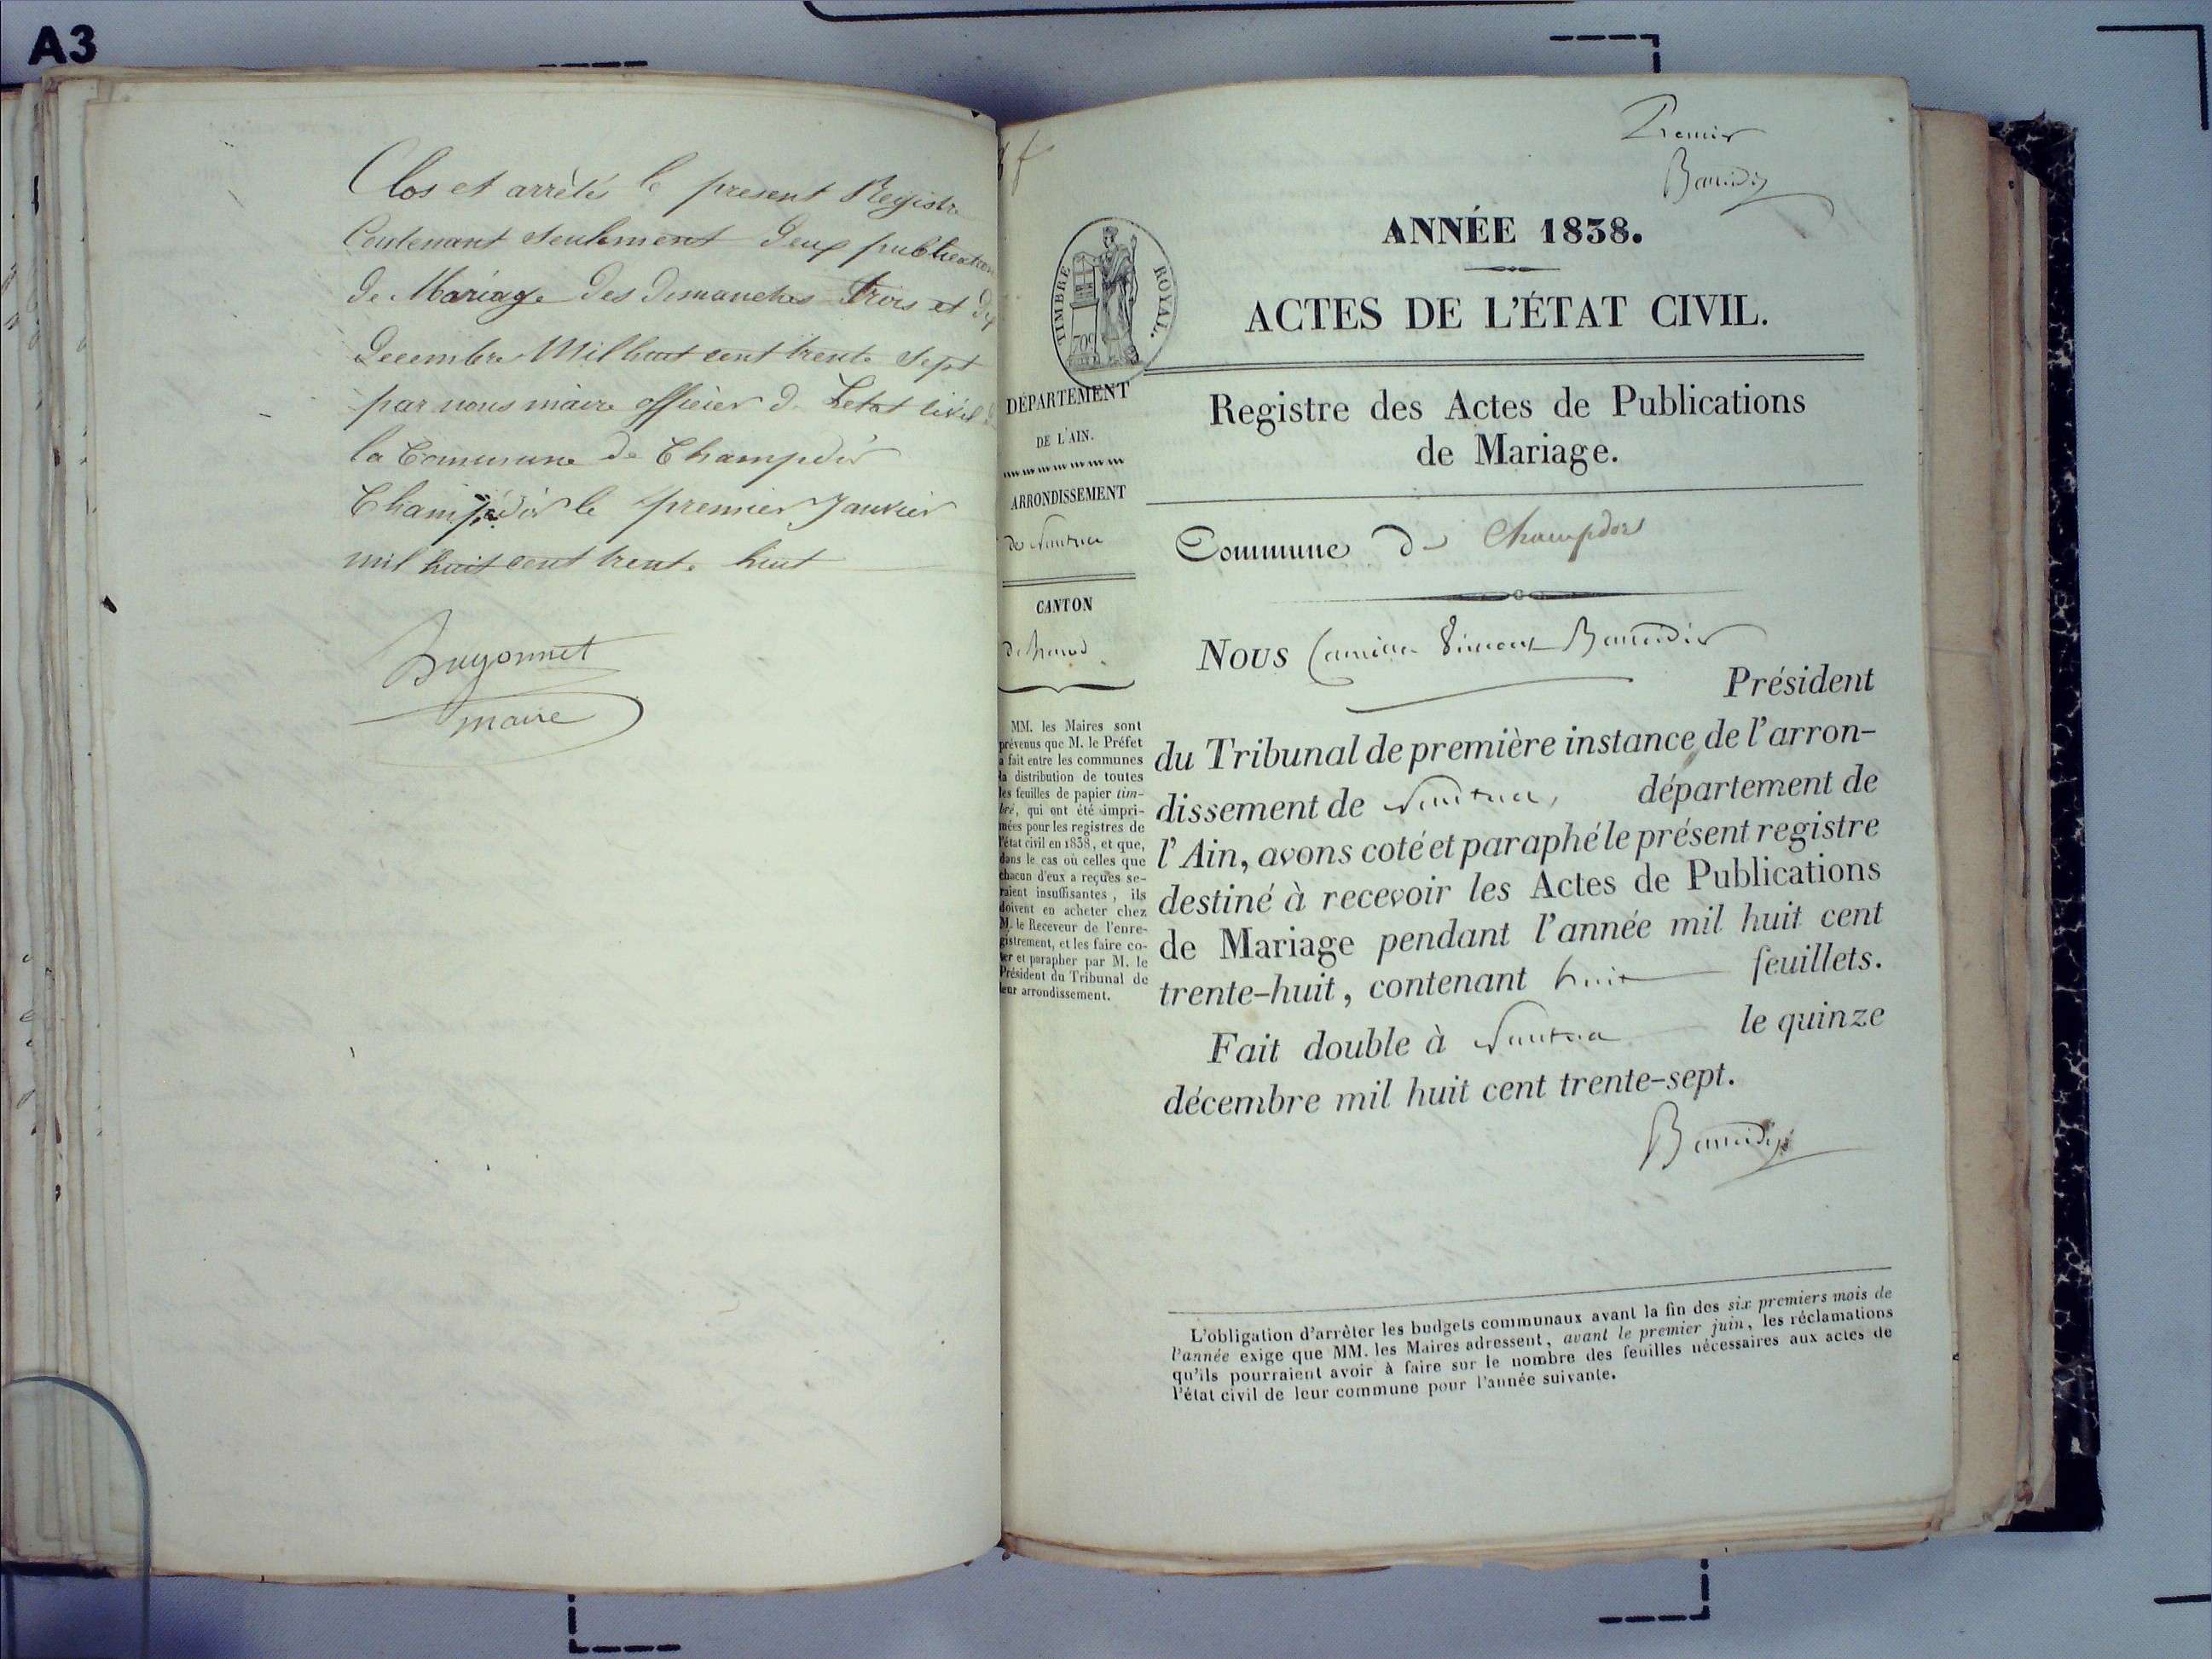 A3
Clos et arrêtés le present Registre
Contenant seulement deux publication
de Mariage des dimanches trois et dix
Decembre Mil huit cent trente sept
par nous maire officier de Letat civil
la Commune de Champdor
Champdor le premier Janvier
mil huit cent trente huit
maire
Premier
ANNÉE 1838.
ACTES DE L'ÉTAT CIVIL.
TIMBRE ROYAL.
DÉPARTEMENT
DE L'AIN.
ARRONDISSEMENT
de Nantua
CANTON
MM. les Maires sont
prévenus que M. le Préfet
a fait entre les communes
la distribution de toutes
les feuilles de papier tim-
bré, qui ont été impri-
mées pour les registres de
l'état civil en 1838, et que,
dans le cas où celles que
chacun d'eux a reçues se-
raient insuffisantes, ils
doivent en acheter chez
M. le Receveur de l'enre-
gistrement, et les faire co-
ter et parapher par M. le
Président du Tribunal de
leur arrondissement.
Registre des Actes de Publications
de Mariage.
Commune de Champdor
Nous Camille Vincent
Président
du Tribunal de première instance de l'arron-
dissement de Nantua, département de
l'Ain, avons coté et paraphé le présent registre
destiné à recevoir les Actes de Publications
de Mariage pendant l'année mil huit cent
trente-huit, contenant huit feuillets.
Fait double à Nantua le quinze
décembre mil huit cent trente-sept.
L'obligation d'arrêter les budgets communaux avant la fin des six premiers mois de
l'année exige que MM. les Maires adressent, avant le premier juin, les réclamations
qu'ils pourraient avoir à faire sur le nombre des feuilles nécessaires aux actes de
l'état civil de leur commune pour l'année suivante.